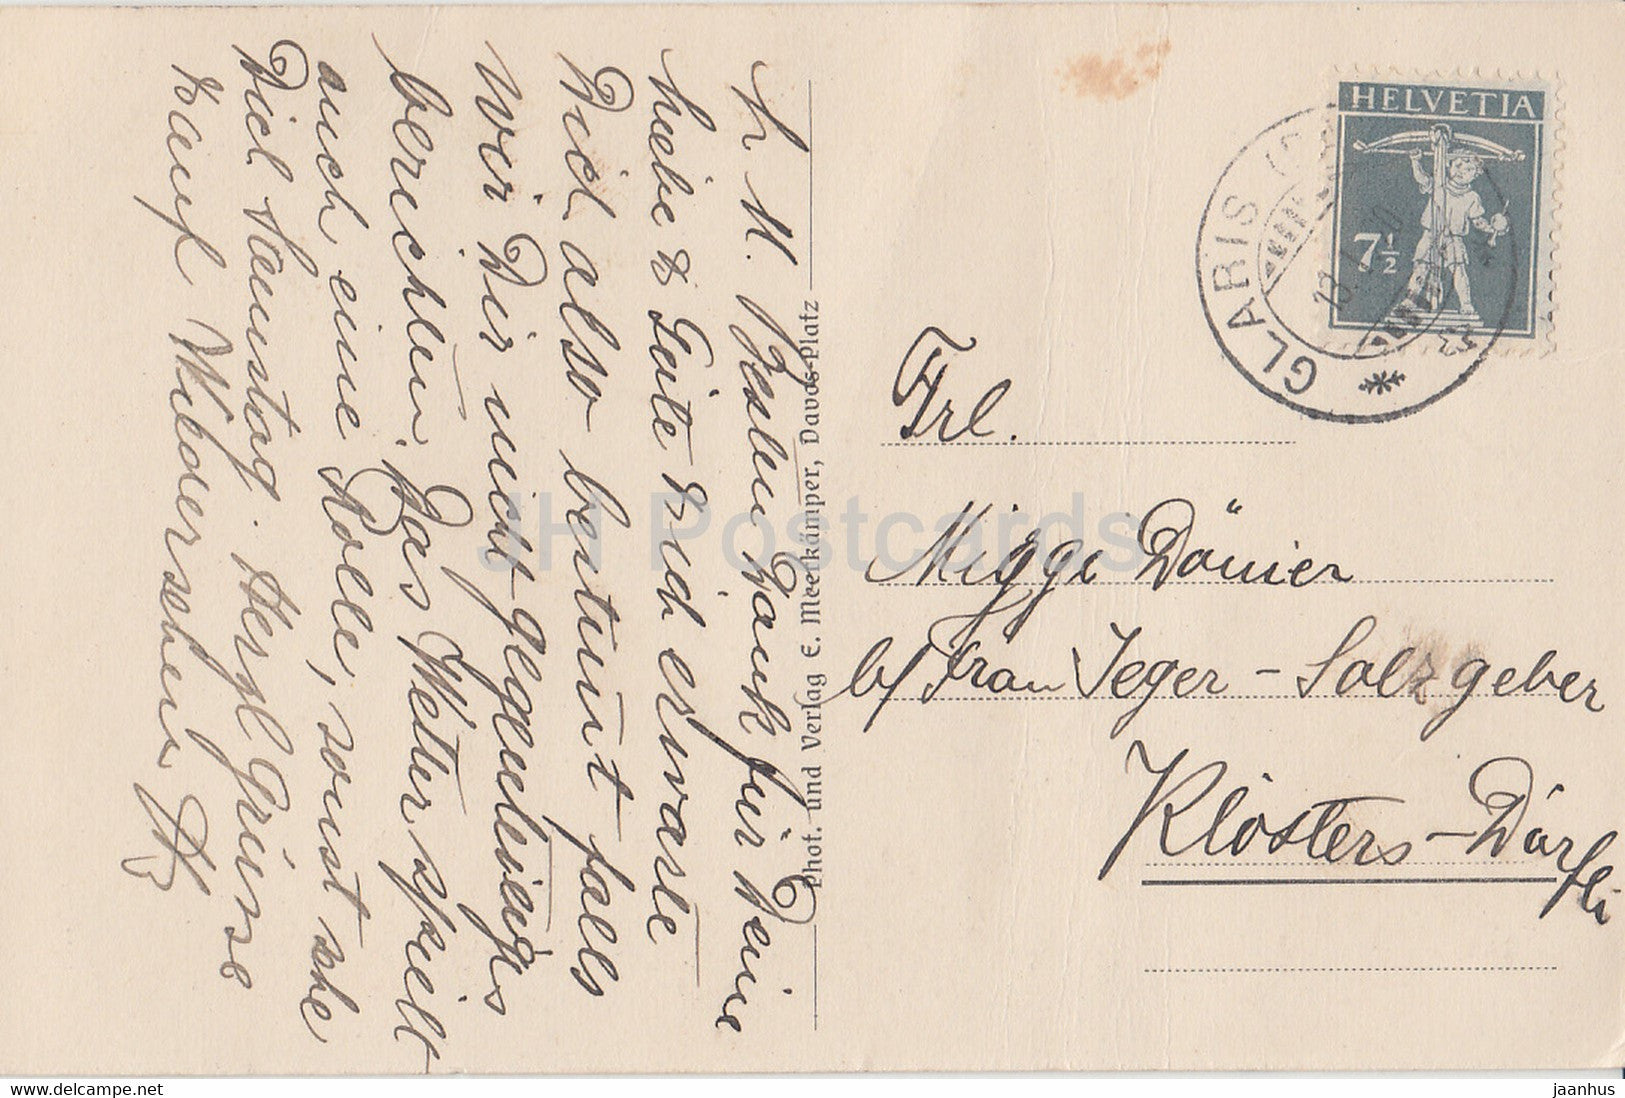 L. M. Besten Dank für Deine
liebe & Gute & ich erwarte
Dich also bestimt falls
wir Dir nicht gegenteiliges
berichten. Das Wetter spielt
auch eine Rolle, sonst sehe
Dich Samstag. Herzl Grüsse
& auf Wiedersehen
Phot. und Verlag E. Meerkämper, Davos-Platz
HELVETIA
7½
GLARIS
13.
Frl.
Migge Dönier
b/ Frau Jeger-Salzgeber
Klosters-Dörfli
JH Postcards
www.delcampe.net
jaanhus